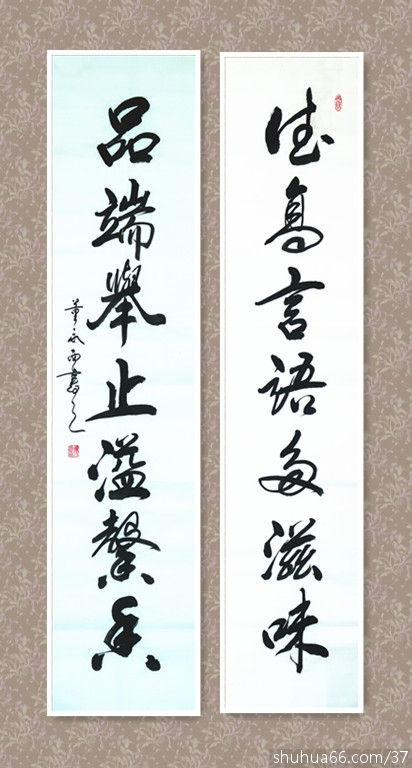 德高言語多滋味
品端舉止溢馨香
董永西書
shuhua66.com/37